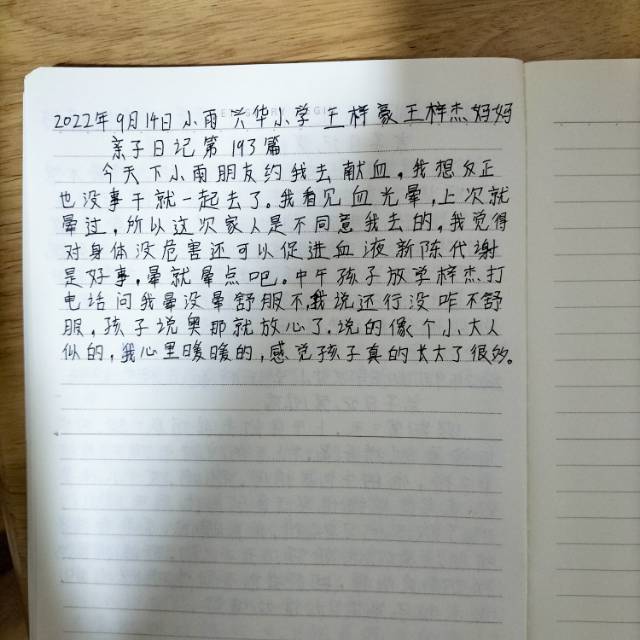 2022年9月14日 小雨 兴华小学 王梓豪王梓杰妈妈
亲子日记第193篇
今天下小雨朋友约我去献血，我想反正
也没事干就一起去了。我看见血光晕，上次就
晕过，所以这次家人是不同意我去的，我觉得
对身体没危害还可以促进血液新陈代谢
是好事，晕就晕点吧。中午孩子放学梓杰打
电话问我晕没晕舒服不，我说还行没咋不舒
服，孩子说奥那就放心了，说的像个小大人
似的，我心里暖暖的，感觉孩子真的长大了很多。